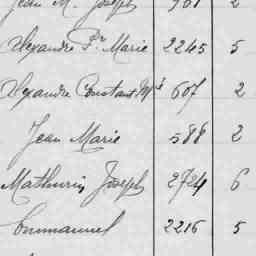 Jean M. Joseph 901 2
Alexandre Fr. Marie 2245 5
Alexandre Constant Mie 607 2
Jean Marie 588 2
Mathurin Joseph 2724 6
Emmanuel 2216 5